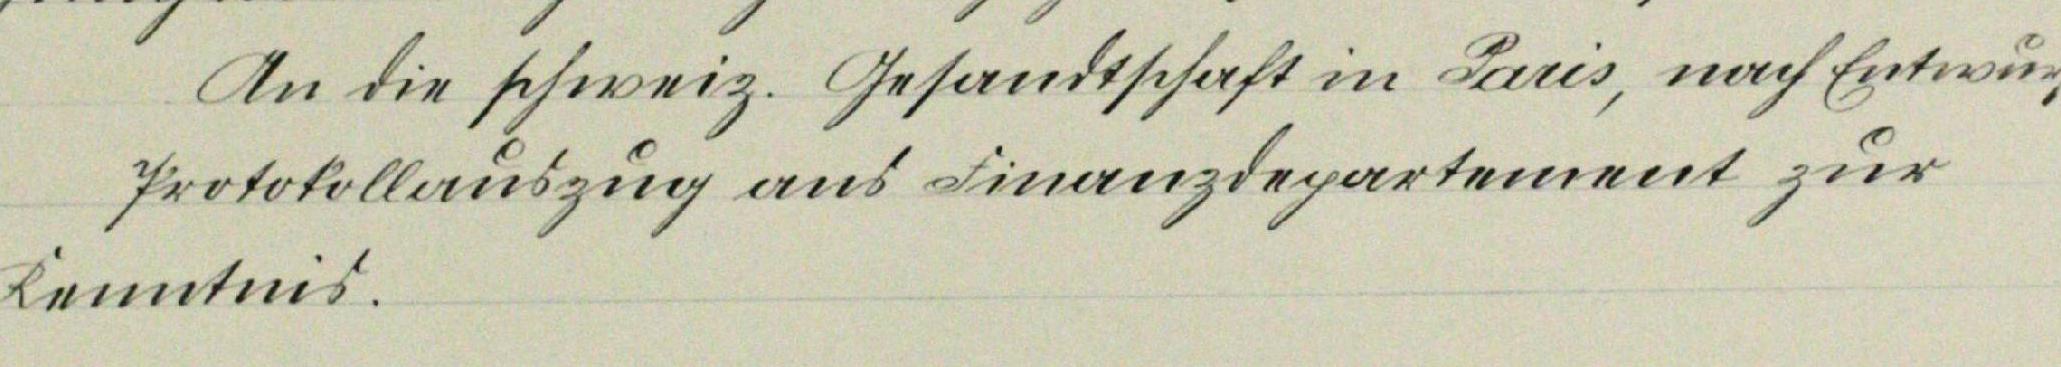 An die schweiz. Gesandtschaft in Paris, nach Entwurf
Protokollauszug ans Finanzdepartement zur
Kenntnis.